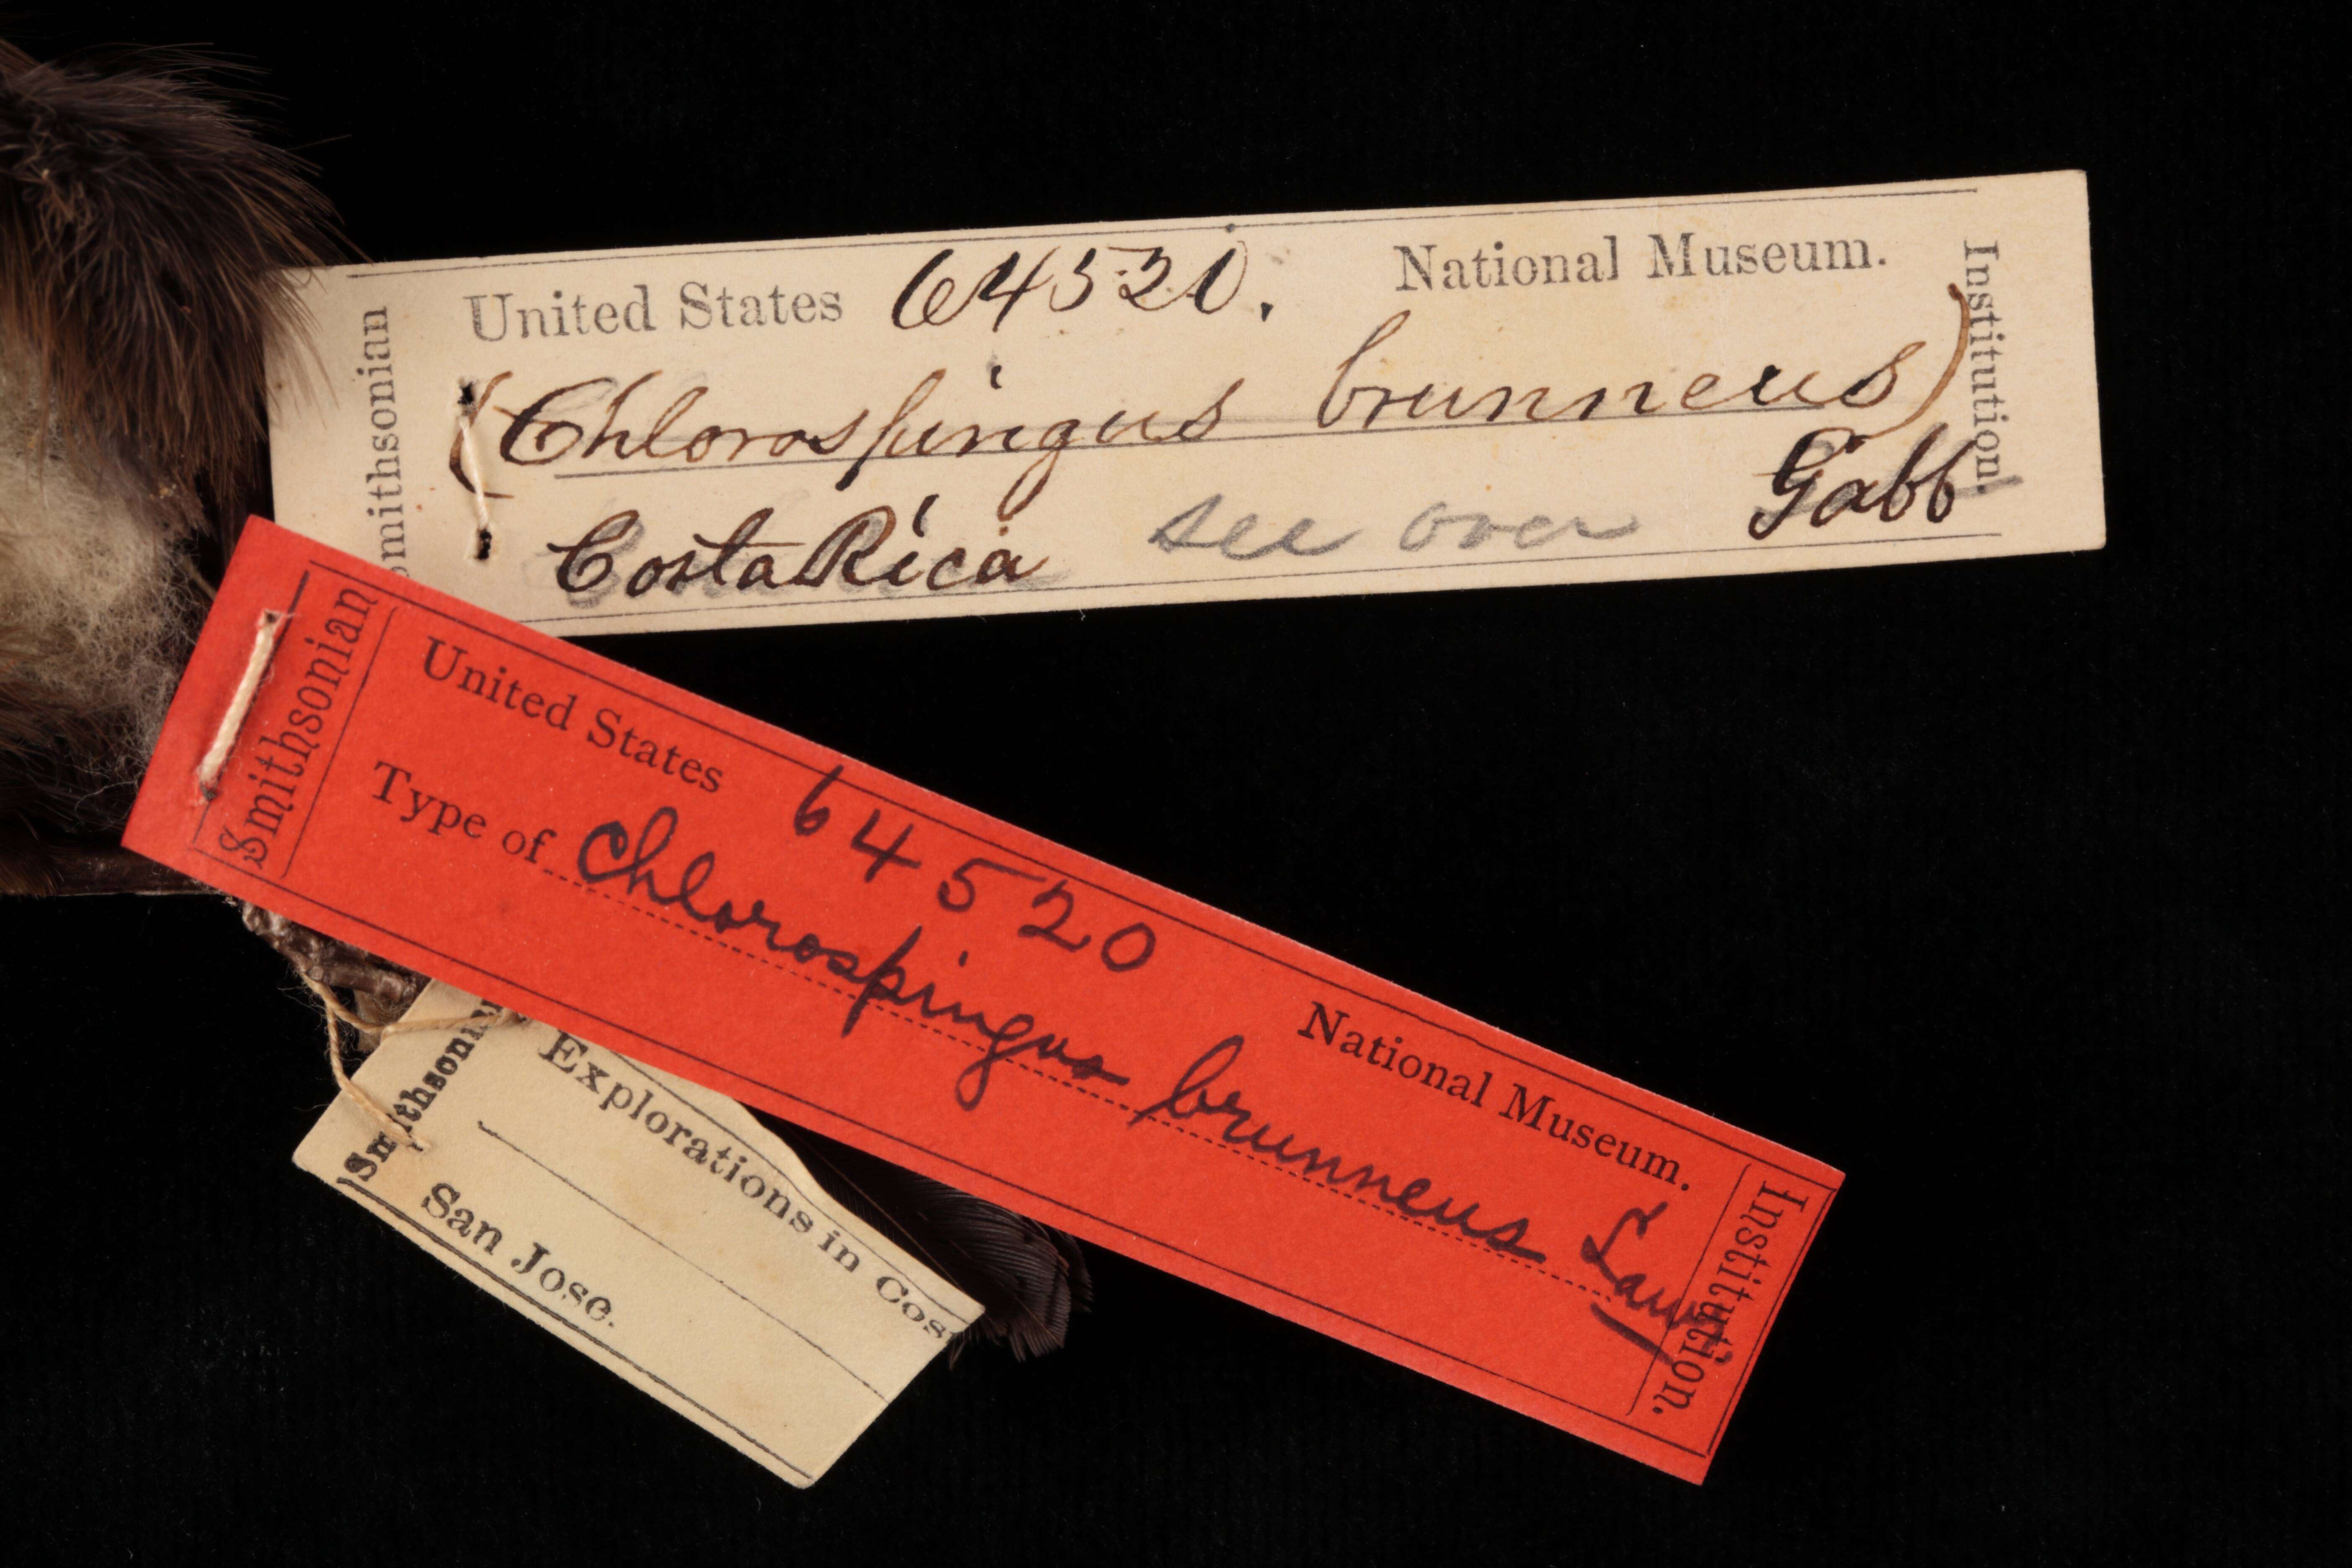 Smithsonian
United States 64520. National Museum.
(Chlorospingus brunneus)
Costa Rica see over Gabb
Institution.
Smithsonian
United States 64520 National Museum.
Type of Chlorospingus brunneus Lawr.
Institution.
Smithsonian
Explorations in Cos
San Jose.